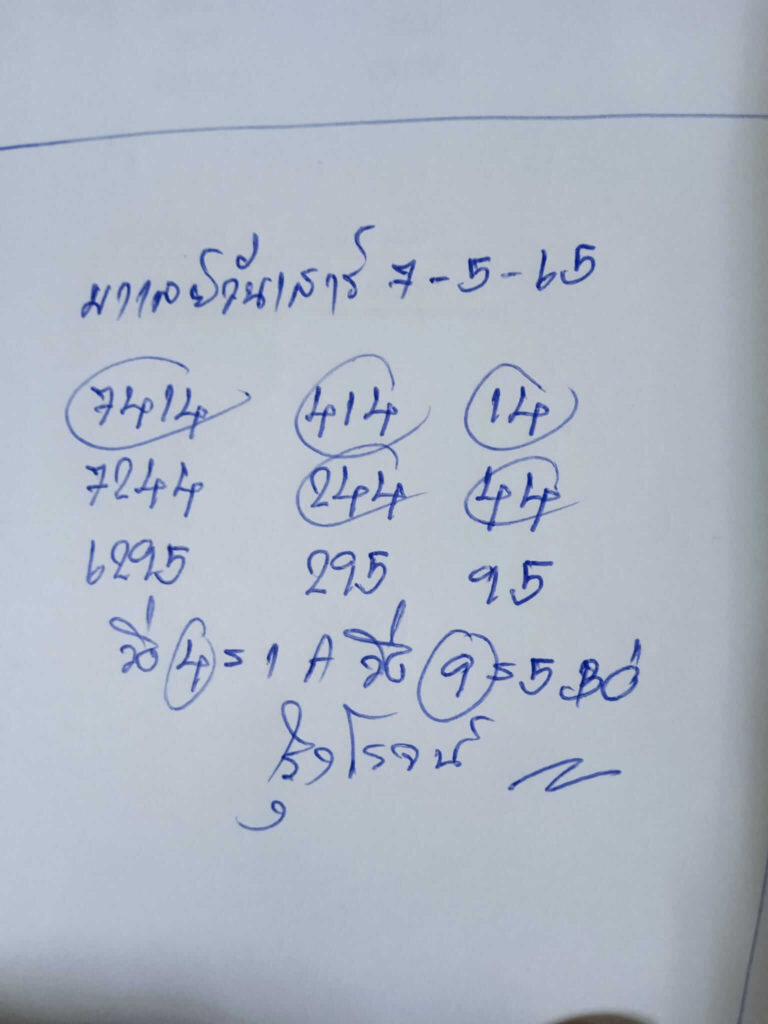 มาเลย์วันเสาร์ 7-5-65
7414 414 14
7244 244 44
6295 295 95
วิ่ง 4=1 A วิ่ง 9=5
รุ่งโรจน์